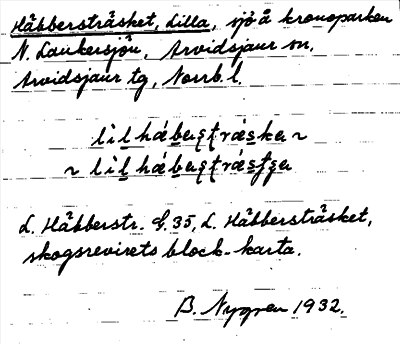 Håbbersträsket, Lilla, sjö å kronoparken
N. Laukersjön, Arvidsjaur sn,
Arvidsjaur tg, Norrb. l.
L. Håbberstr. G. 35, L. Håbbersträsket,
skogsrevirets block-karta.
B. Nygren 1932.